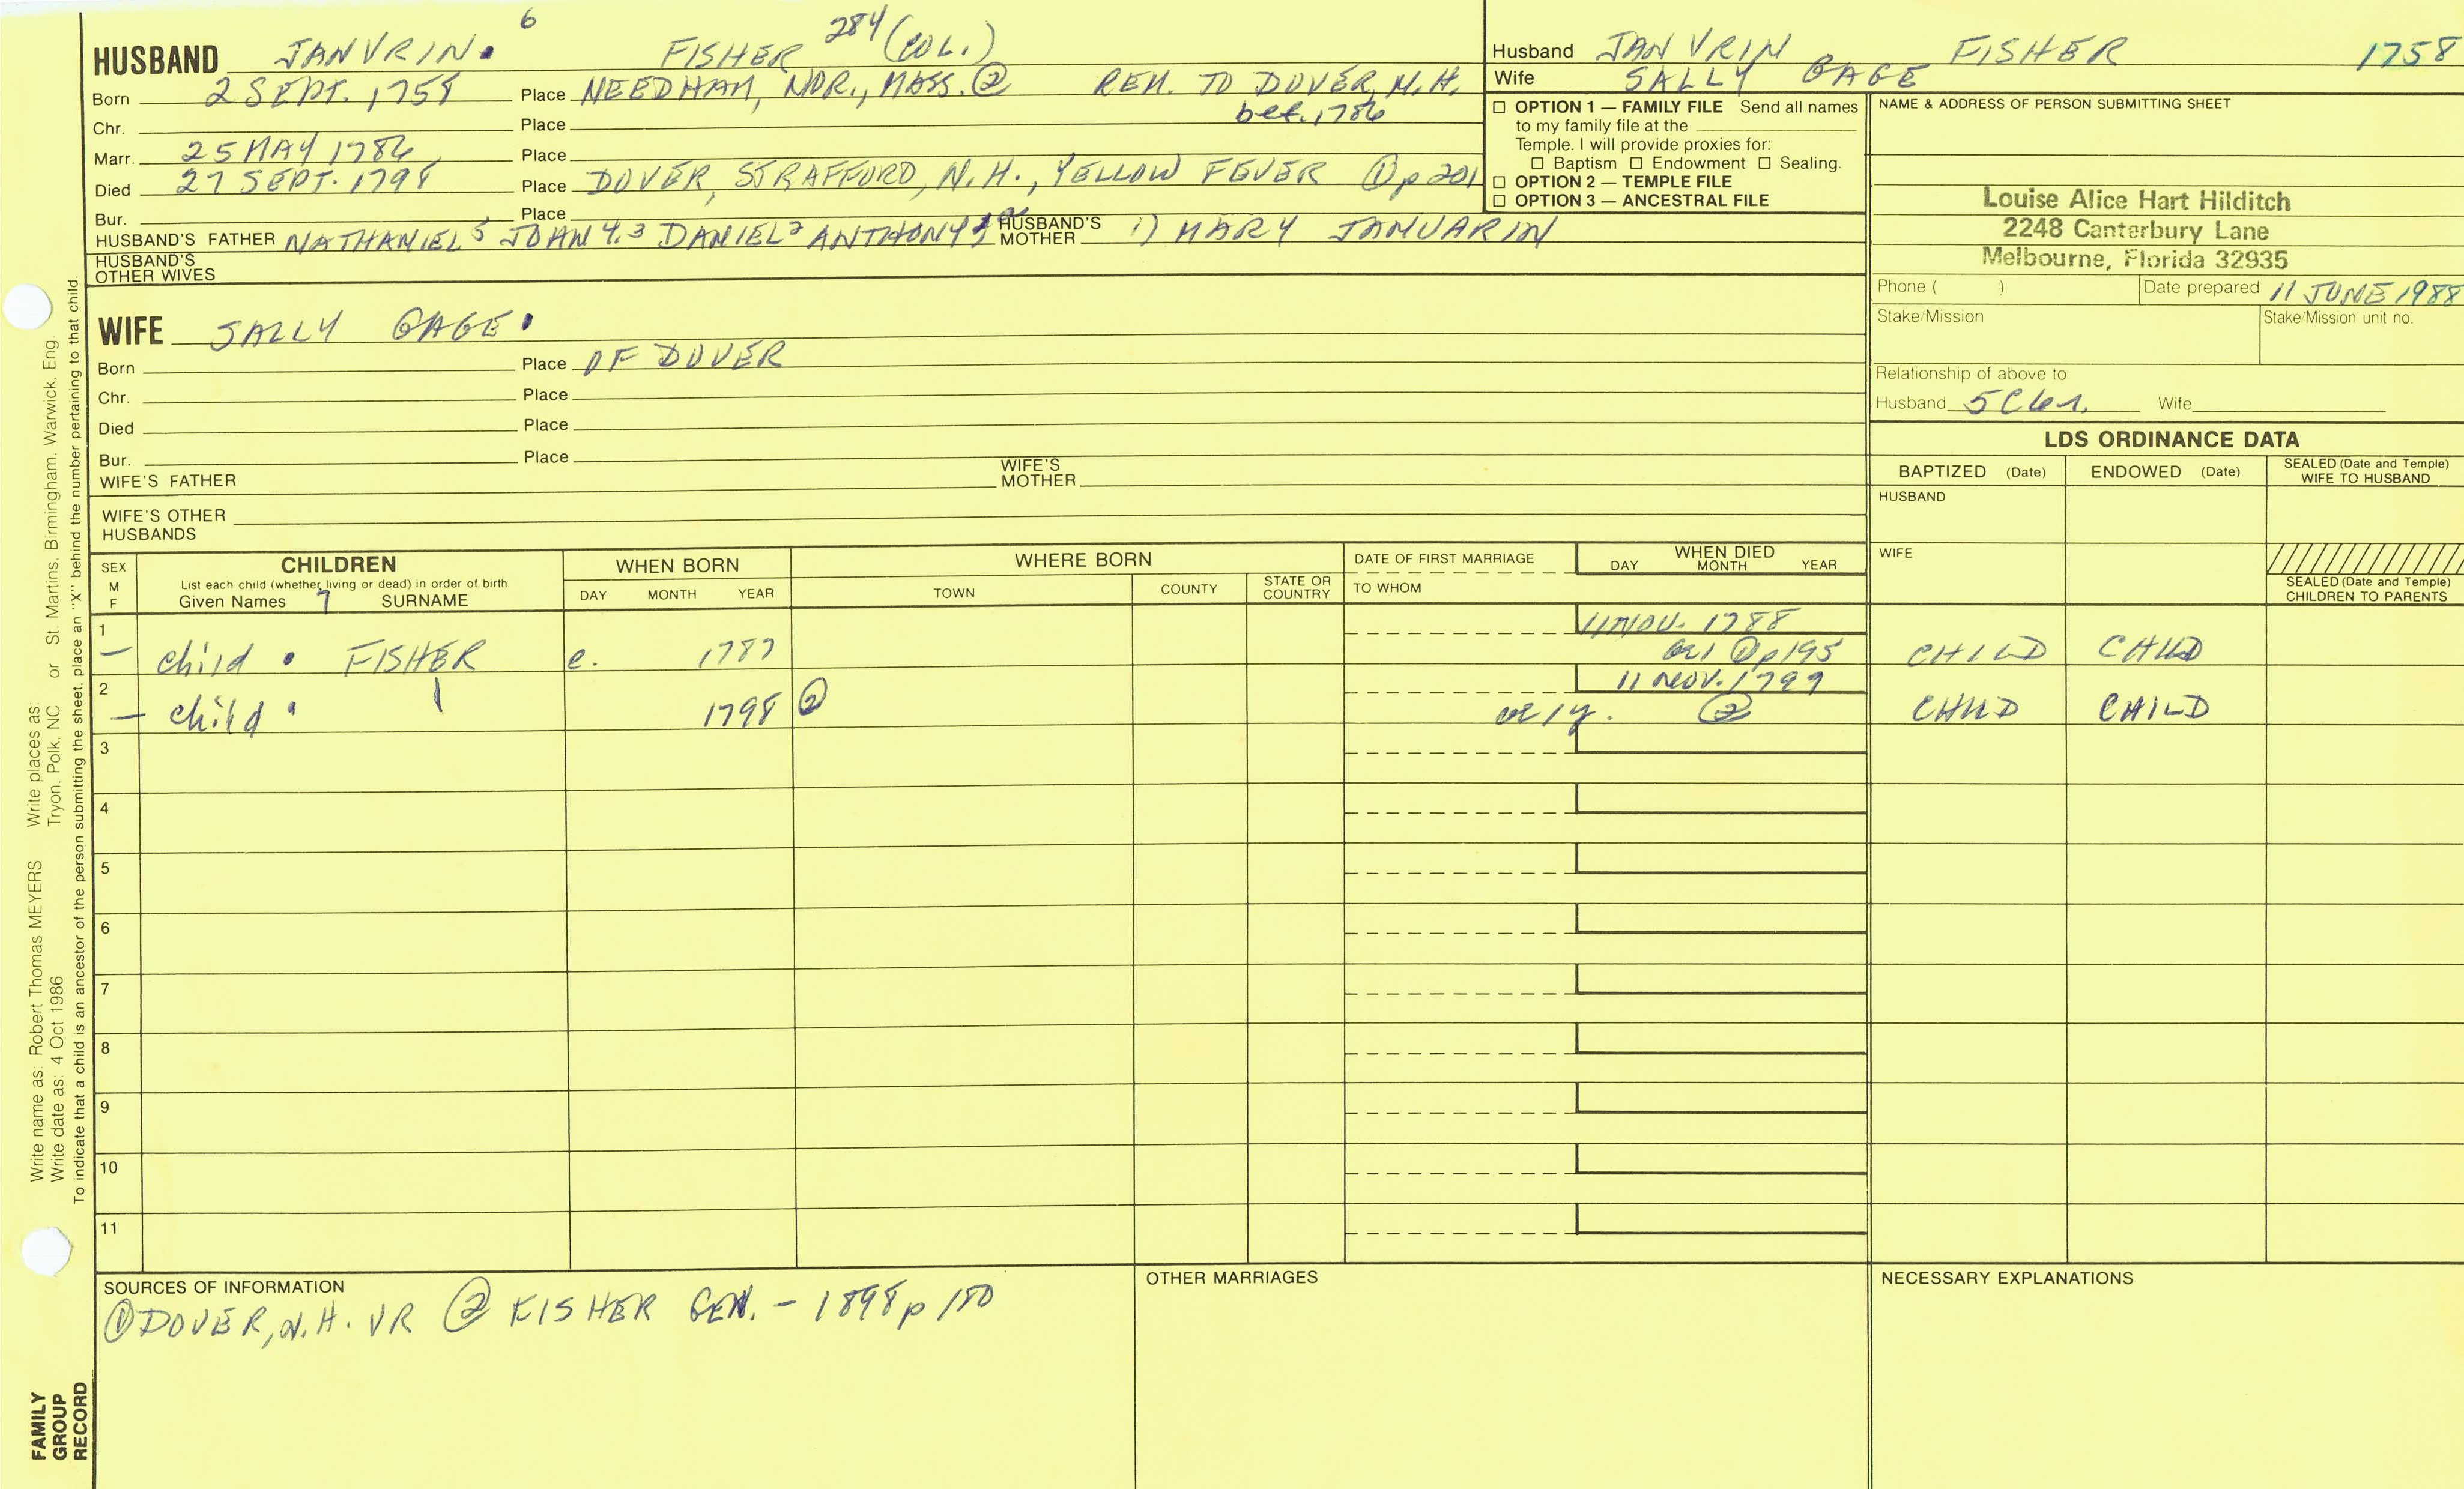 HUSBAND JANVRIN. 6 FISHER 284 (COL.)
Born 2 SEPT. 1758 Place NEEDHAM, NOR., MASS. ② REM. TO DOVER, N.H.
bef. 1786
Chr. Place
Marr. 25 MAY 1786 Place
Died 27 SEPT. 1798 Place DOVER, STRAFFORD, N.H., YELLOW FEVER ① p 201
Bur. Place
HUSBAND'S FATHER NATHANIEL 5 JOHN 4,3 DANIEL 2 ANTHONY HUSBAND'S MOTHER 1) MARY JANUARIN
HUSBAND'S OTHER WIVES
WIFE SALLY GAGE.
Born Place OF DOVER
Chr. Place
Died Place
Bur. Place
WIFE'S FATHER WIFE'S MOTHER
WIFE'S OTHER HUSBANDS
Husband JANVRIN FISHER 1758
Wife SALLY GAGE
☐ OPTION 1 — FAMILY FILE Send all names
to my family file at the
Temple. I will provide proxies for:
☐ Baptism ☐ Endowment ☐ Sealing.
☐ OPTION 2 — TEMPLE FILE
☐ OPTION 3 — ANCESTRAL FILE
NAME & ADDRESS OF PERSON SUBMITTING SHEET
Louise Alice Hart Hilditch
2248 Canterbury Lane
Melbourne, Florida 32935
Phone ( ) Date prepared 11 JUNE 1988
Stake/Mission Stake/Mission unit no.
Relationship of above to:
Husband 5C6r. Wife
LDS ORDINANCE DATA
BAPTIZED (Date) ENDOWED (Date) SEALED (Date and Temple) WIFE TO HUSBAND
HUSBAND
WIFE
SEALED (Date and Temple) CHILDREN TO PARENTS
SEX M F
CHILDREN
List each child (whether living or dead) in order of birth
Given Names 7 SURNAME
WHEN BORN
DAY MONTH YEAR
WHERE BORN
TOWN COUNTY STATE OR COUNTRY
DATE OF FIRST MARRIAGE
TO WHOM
WHEN DIED
DAY MONTH YEAR
1 11 NOV. 1788
— child . FISHER c. 1787 ae 1 ① p 195 CHILD CHILD
2 11 NOV. 1799
— child . 1798 ② ae 1 y. ② CHILD CHILD
3
4
5
6
7
8
9
10
11
SOURCES OF INFORMATION
① DOVER, N.H. VR ② FISHER GEN. - 1898 p 180
OTHER MARRIAGES
NECESSARY EXPLANATIONS
Write name as: Robert Thomas MEYERS Write places as:
Write date as: 4 Oct 1986 Tryon, Polk, NC or St. Martins, Birmingham, Warwick, Eng.
To indicate that a child is an ancestor of the person submitting the sheet, place an "X" behind the number pertaining to that child.
FAMILY
GROUP
RECORD